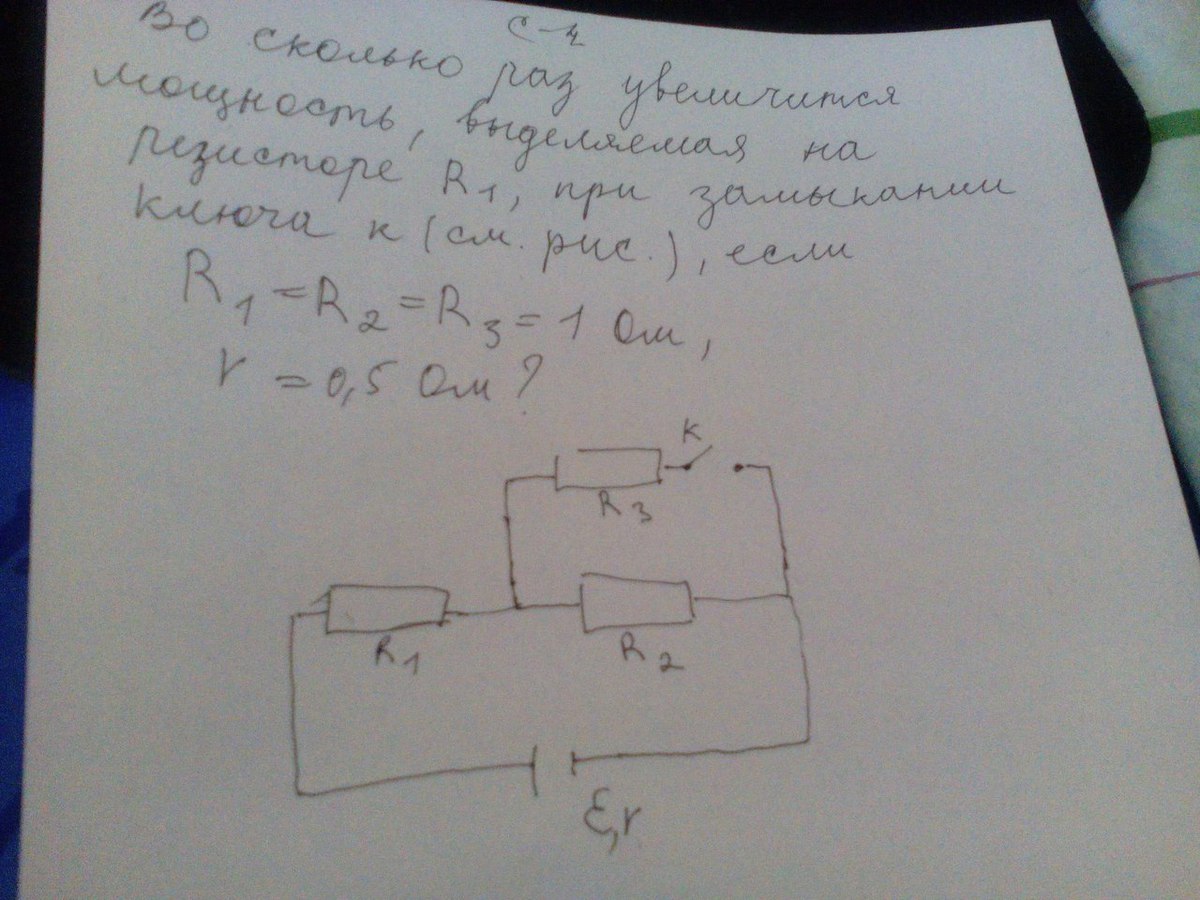 С-4
Во сколько раз увеличится
мощность, выделяемая на
резисторе R1, при замыкании
ключа к (см. рис.), если
R1 = R2 = R3 = 1 Ом,
r = 0,5 Ом?
К
R3
R1
R2
ℰ, r